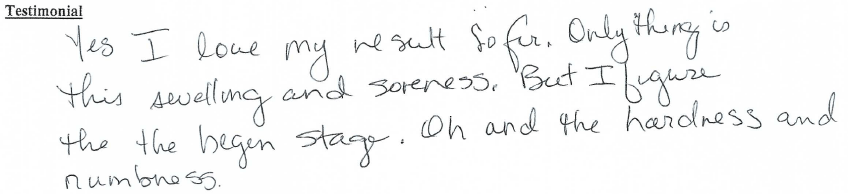 Testimonial
Yes I love my result so far. Only thing is
this swelling and soreness. But I figure
the the begen stage. Oh and the hardness and
numbness.